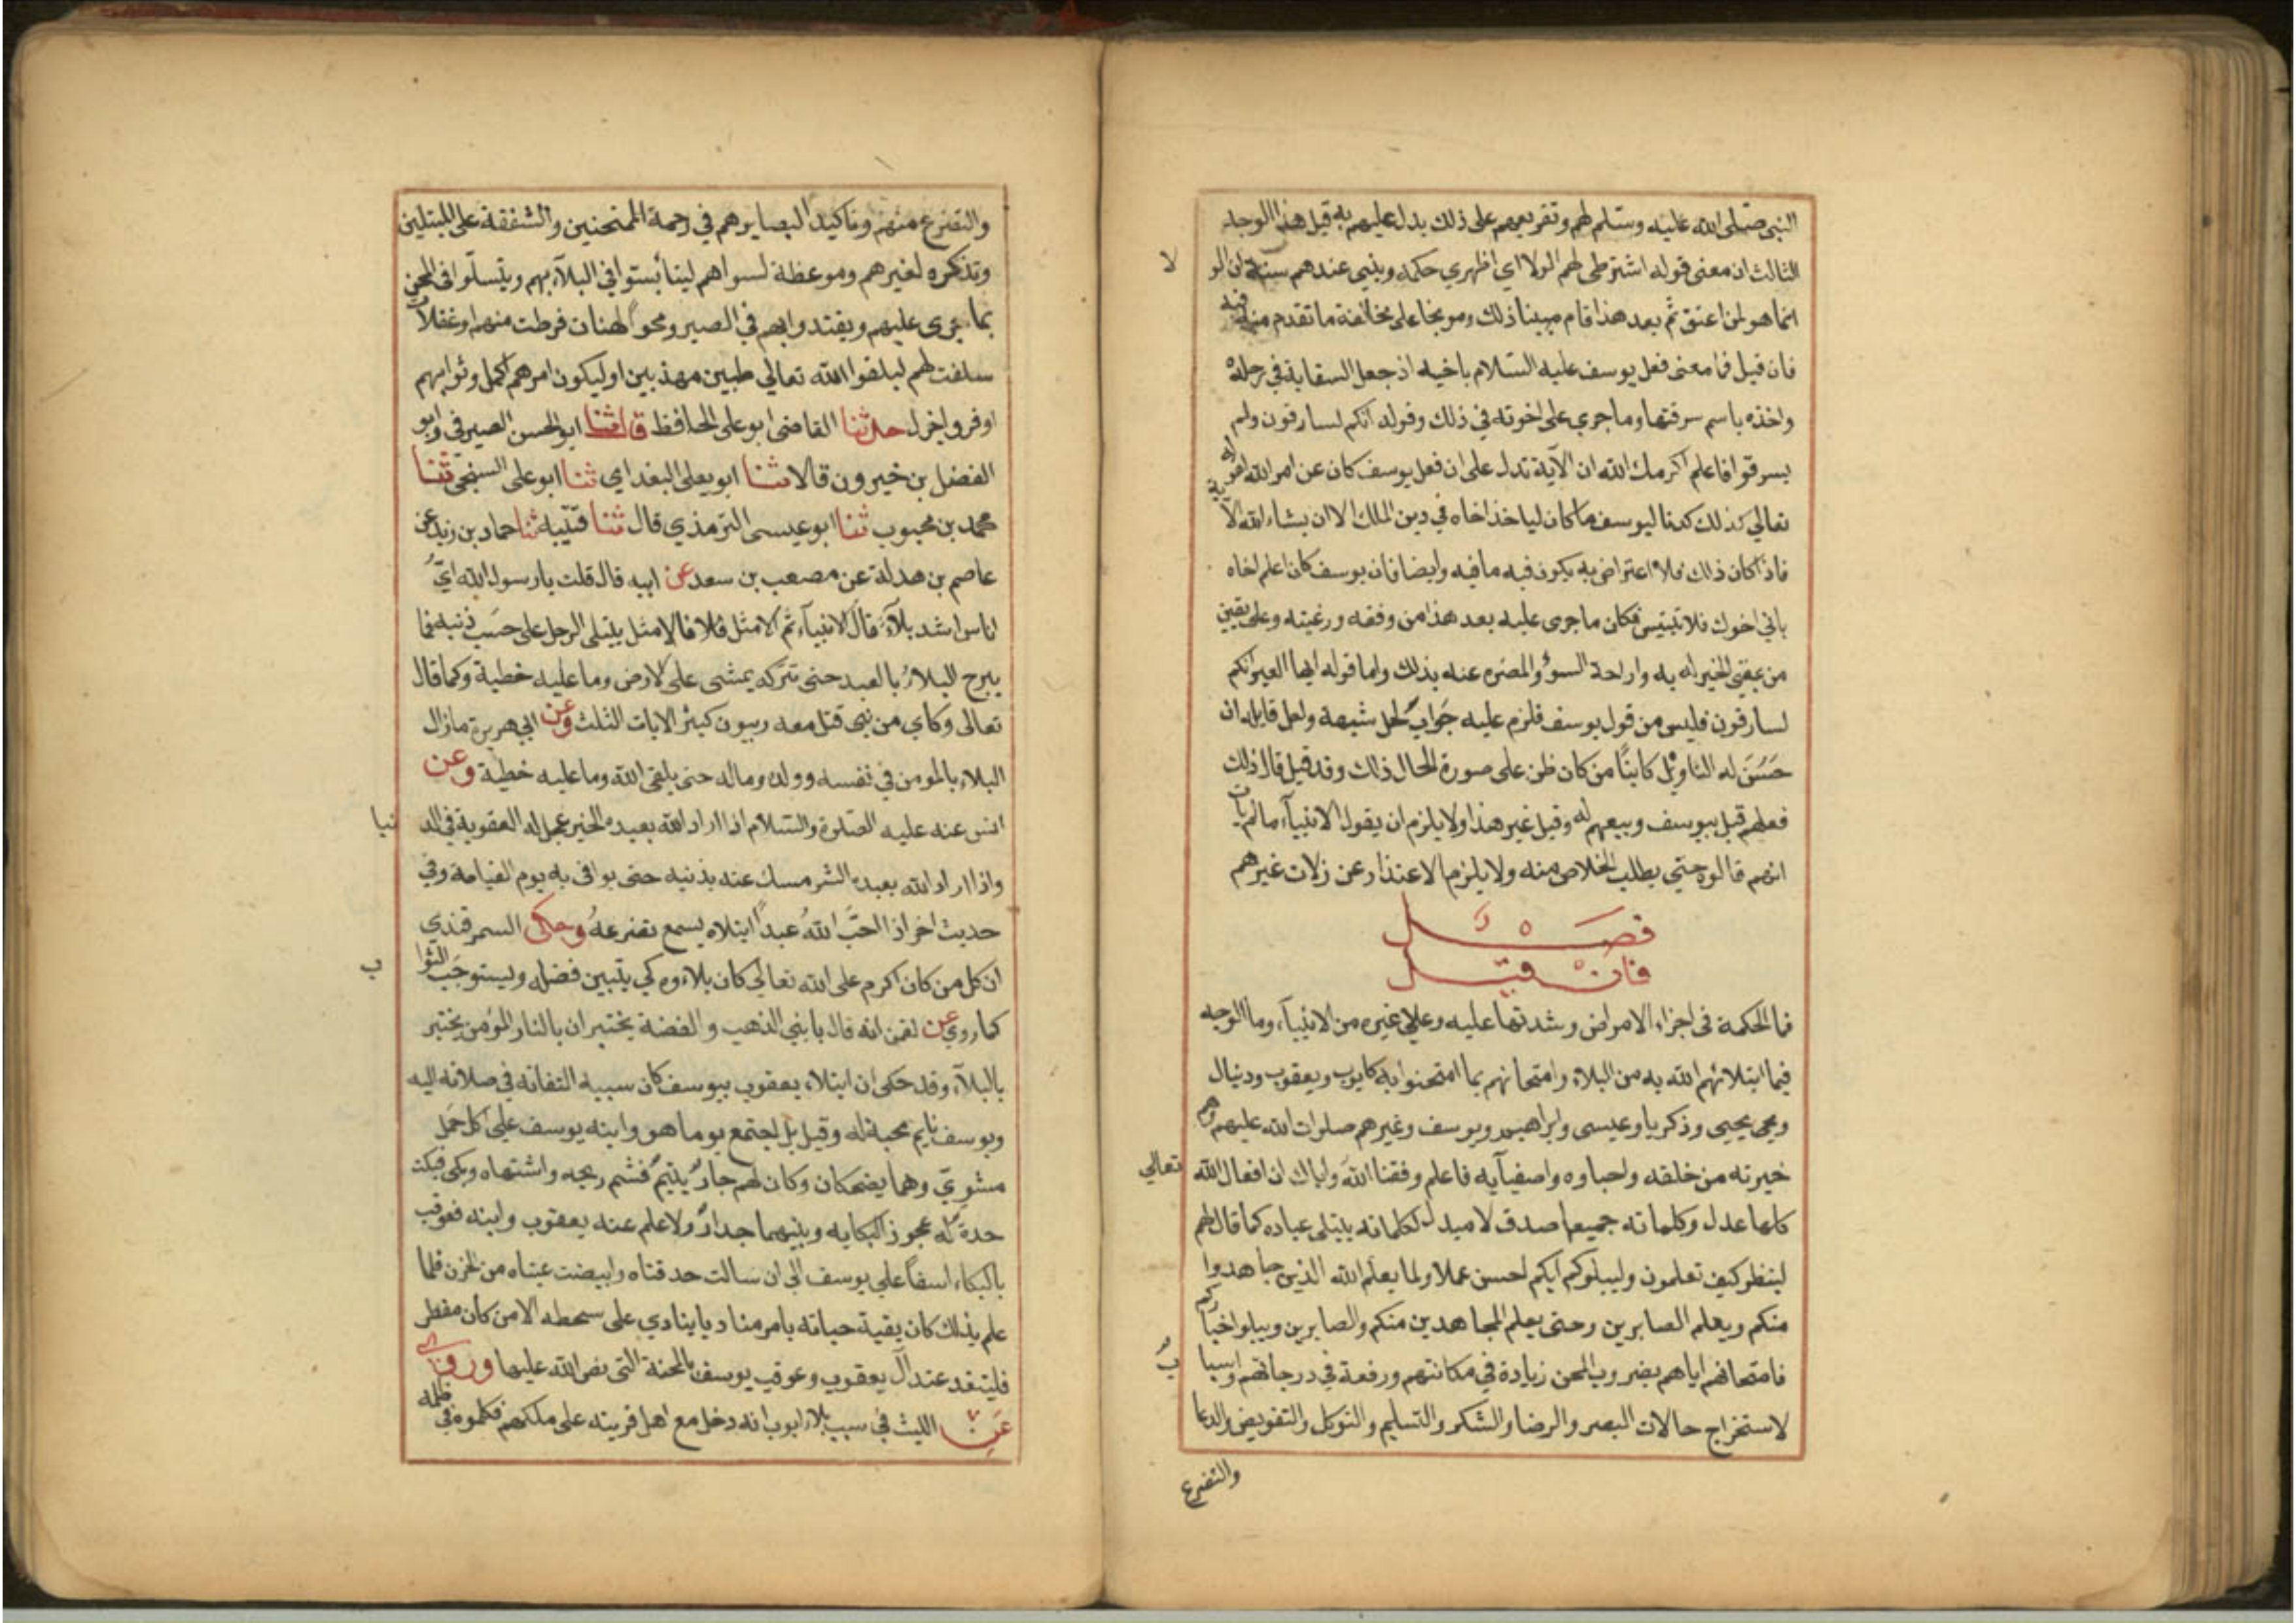 النبى صلى الله عليه وسلم لهم وتقريعهم على ذلك يدل عليهم به قبل هذا الوجه
الثالث ان معنى قوله اشترطى لهم الولا اى اظهري حكمه وبينى عندهم سنته ان الو
لا
انما هو لمن اعتق ثم بعد هذا قام مبينا ذلك وموبخا على مخالفة ما تقدم منه فيه
فان قيل فما معنى فعل يوسف عليه السلام باخيه اذ جعل السقاية في رحله
واخذه باسم سرقتها وما جري على اخوته في ذلك وقوله انكم لسارقون ولم
يسرقوا فاعلم اكرمك الله ان الآية تدل على ان فعل يوسف كان عن امر الله لقوله
تعالي كذلك كدنا ليوسف ما كان لياخذ اخاه في دين الملك الا ان يشاء الله الآ
ية
فاذا كان ذلك فلا اعتراض به يكون فيه ما فيه وايضا فان يوسف كان اعلم اخاه
باني اخوك فلا تبتيس فكان ما جرى عليه بعد هذا من وفقه ورغبته وعلى يقين
من عقبى الخير له به وازاحة السوء والمضره عنه بذلك واما قوله ايها العير انكم
لسارقون فليس من قول يوسف فلزم عليه جواب لحل شبهة ولعل قايله ان
حسن له التاويل كاينا من كان ظن على صورة الحال ذلك وقد قيل قال ذلك
لفعلهم قبل بيوسف وبيعهم له وقيل غير هذا ولا يلزم ان يقول الانبيآء ما لم يات
انهم قالوه حتي يطلب الخلاص منه ولا يلزم الاعتذار عن زلات غيرهم
فصل
فان قيل
فما الحكمة فى اجراء الامراض وشدتها عليه وعلي غيره من الانبيآء وما الوجه
فيما ابتلائهم الله به من البلاء وامتحانهم بما امتحنوا به كايوب ويعقوب ودنيال
ويحيى وذكريا وعيسى وابراهيم ويوسف وغيرهم صلوات الله عليهم وهم
خيرته من خلقه واحباوه واصفيآيه فاعلم وفقنا الله واياك ان افعال الله
تعالي
كلها عدل وكلماته جميعا صدق لا مبدل لكلماته يبتلى عباده كما قال لهم
لينظر كيف تعلمون وليبلوكم ايكم احسن عملا ولما يعلم الله الذين جاهدوا
منكم ويعلم الصابرين وحتى يعلم المجاهدين منكم والصابرين ويبلو اخبا
ركم
فامتحانهم اياهم بضروب المحن زيادة في مكانتهم ورفعة في درجاتهم واسبا
ب
لاستخراج حالات البصر والرضا والشكر والتسليم والتوكل والتفويض والدعا
والتضرع
والتضرع منهم وتاكيد البصايرهم في رحمة الممتحنين والشفقة على المبتلين
وتذكره لغيرهم وموعظة لسواهم ليتأسوا في البلآء بهم ويتسلوا في المحن
بما جرى عليهم ويقتدوا بهم في الصبر ومحوا لهنات فرطت منهم او غفلات
سلفت لهم ليلقوا الله تعالي طيبين مهذبين او ليكون امرهم اكمل وثوابهم
اوفر واجزل حدثنا القاضى ابو على الحافظ قال ثنا ابو الحسن الصيرفي وابو
الفضل بن خيرون قالا ثنا ابو يعلى البغداي ثنا ابو على السنجي ثنا
محمد بن محبوب ثنا ابو عيسى الترمذي قال ثنا قتيبه ثنا حماد بن زيد عن
عاصم بن هدلة عن مصعب بن سعد عن ابيه قال قلت يا رسول الله ايّ
اناس اشد بلآء قال الانبيآء ثم الامثل فلا فالامثل يبتلى الرجل على حسب ذنبه فما
يبرح البلاء بالعبد حتى تتركه يمشى على الارض وما عليه خطية وكما قال
تعالى وكاي من نبى قتل معه ربيون كثير الايات الثلث وعن ابي هريرة مازال
البلاء بالمومن في نفسه وولده وماله حتى يلقى الله وما عليه خطية وعن
انس عنه عليه الصلوة والسلام اذا اراد الله بعبده الخير عجل له العقوبة في الد
نيا
واذا اراد الله بعبده الشر مسك عنه بذنبه حتى يوافى به يوم القيامة وفي
حديث اخر اذا احب الله عبدا ابتلاه يسمع تضرعه وحكى السمرقندي
ان كل من كان اكرم على الله تعالي كان بلاءوه كي يتبين فضله ويستوجب الثوا
ب
كما روي عن لقمن انه قال يا بني الذهب والفضة يختبران بالنار المؤمن يختبر
بالبلآء وقد حكى ان ابتلاء يعقوب بيوسف كان سببه التفاته في صلاته اليه
ويوسف نايم محبة له وقيل بل اجتمع يوما هو وابنه يوسف على اكل حمل
مشويّ وهما يضحكان وكان لهم جار يتيم فشم ريحه واشتهاه وبكى فبكت
جدة له عجوز البكايه وبينهما جدار ولا علم عنه يعقوب وابنه فعوقب
بالبكاء اسفا على يوسف الى ان سالت حدقتاه وابيضت عيناه من الحزن فلما
علم بذلك كان بقية حياته يامر مناديا ينادي على سحطه الا من كان مفطر
فليتغد عند آل يعقوب وعوقب يوسف بالمحنة التى نص الله عليها وروى
عن الليث في سبب بلاء ايوب انه دخل مع اهل قريته على ملكهم فكلموه في
ظلمه